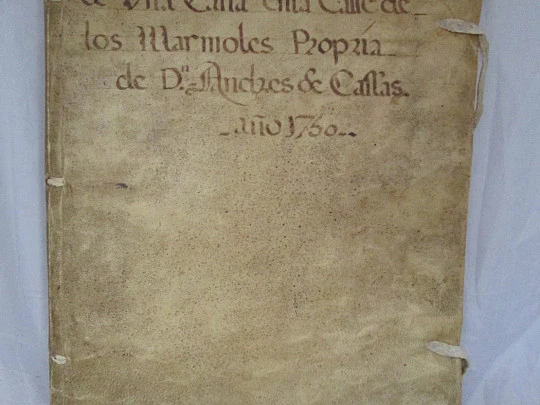 de Una Casa en la Calle de
los Marmoles Propria
de D.n Andres de Cassas.
año 1760